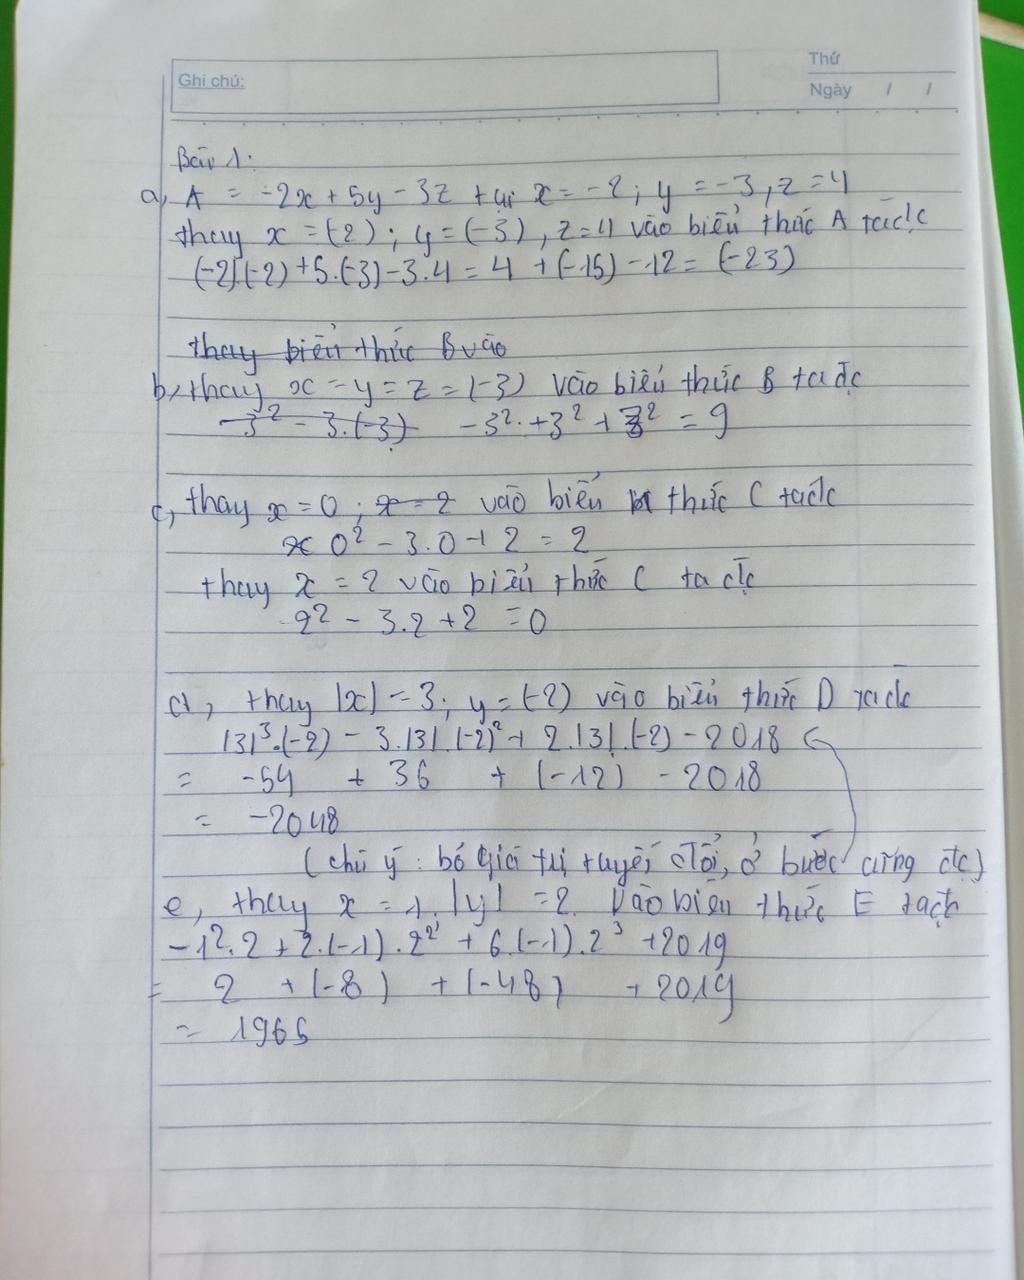 Ghi chú:
Thứ
Ngày / /
Bài 1:
a, A = -2x + 5y - 3z tại x = -2; y = -3, z = 4
thay x = (-2); y = (-3), z = 4 vào biểu thức A ta đc
(-2).(-2) + 5.(-3) - 3.4 = 4 + (-15) - 12 = (-23)
thay biểu thức B vào
b, thay x = y = z = (-3) vào biểu thức B ta đc
-3² - 3.(-3) -3² + 3² + 3² = 9
c, thay x = 0; x = 2 vào biểu thức C ta đc
0² - 3.0 + 2 = 2
thay x = 2 vào biểu thức C ta đc
2² - 3.2 + 2 = 0
d, thay |x| = 3; y = (-2) vào biểu thức D ta đc
|3|³.(-2) - 3.|3|.(-2)² + 2.|3|.(-2) - 2018
= -54 + 36 + (-12) - 2018
= -2048
(chú ý: bỏ giá trị tuyệt đối, ở bước cũng đc)
e, thay x = 1. |y| = 2 vào biểu thức E ta đc
-1².2 + 2.(-1).2² + 6.(-1).2³ + 2019
= 2 + (-8) + (-48) + 2019
= 1965